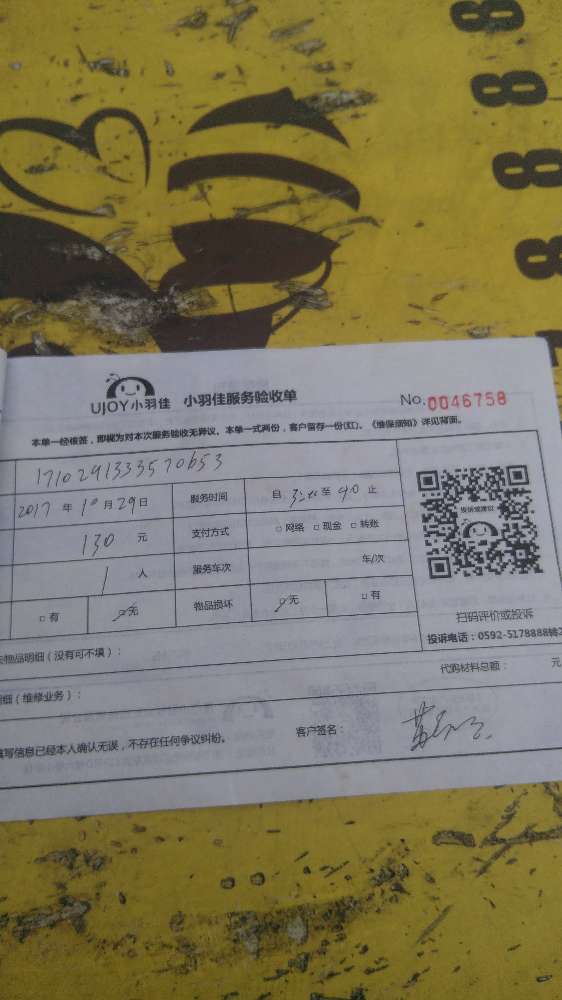 8
8
8
8
UJOY小羽佳 小羽佳服务验收单 No.0046758
本单一经核签，即视为对本次服务验收无异议。本单一式两份，客户留存一份(红)。《维保须知》详见背面。
1710291333570653
2017 年 10 月 29 日 服务时间 自 至 止
130 元 支付方式 □ 网络 □ 现金 □ 转账
1 人 服务车次 车/次
□ 有 □ 无 物品损坏 □ 无 □ 有
投诉或建议
扫码评价或投诉
投诉电话：0592-5178888转2
物品明细（没有可不填）：
代购材料总额： 元
明细（维修业务）：
填写信息已经本人确认无误，不存在任何争议纠纷。 客户签名：